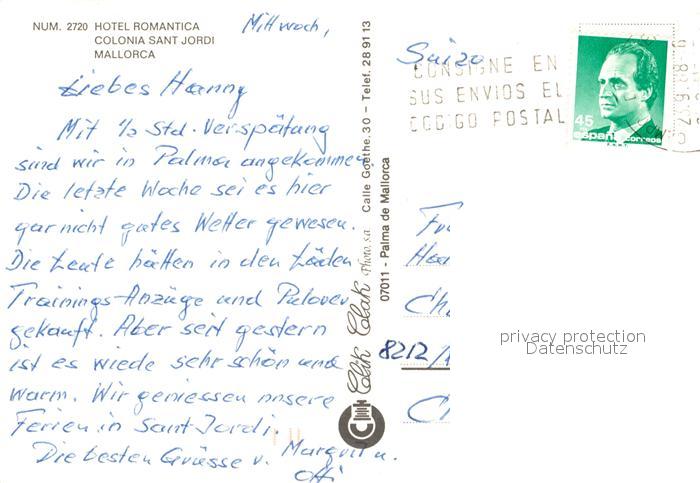 NUM. 2720 HOTEL ROMANTICA
COLONIA SANT JORDI
MALLORCA
Mittwoch,
Liebes Hanny
Mit 1/2 Std. Verspätung
sind wir in Palma angekommen
Die letzte Woche sei es hier
gar nicht gutes Wetter gewesen.
Die Leute hätten in den Läden
Trainings-Anzüge und Pulover
gekauft. Aber seit gestern
ist es wiede sehr schön und
warm. Wir geniessen unsere
Ferien in Sant Jordi.
Die besten Grüsse v. Margrit u.
Otti
Clak Clak Photo, s.a. Calle Goethe, 30 – Telef. 28 91 13
07011 - Palma de Mallorca
Suiza
CONSIGNE EN
SUS ENVIOS EL
CODIGO POSTAL
45
españa
correos
8212/
privacy protection
Datenschutz